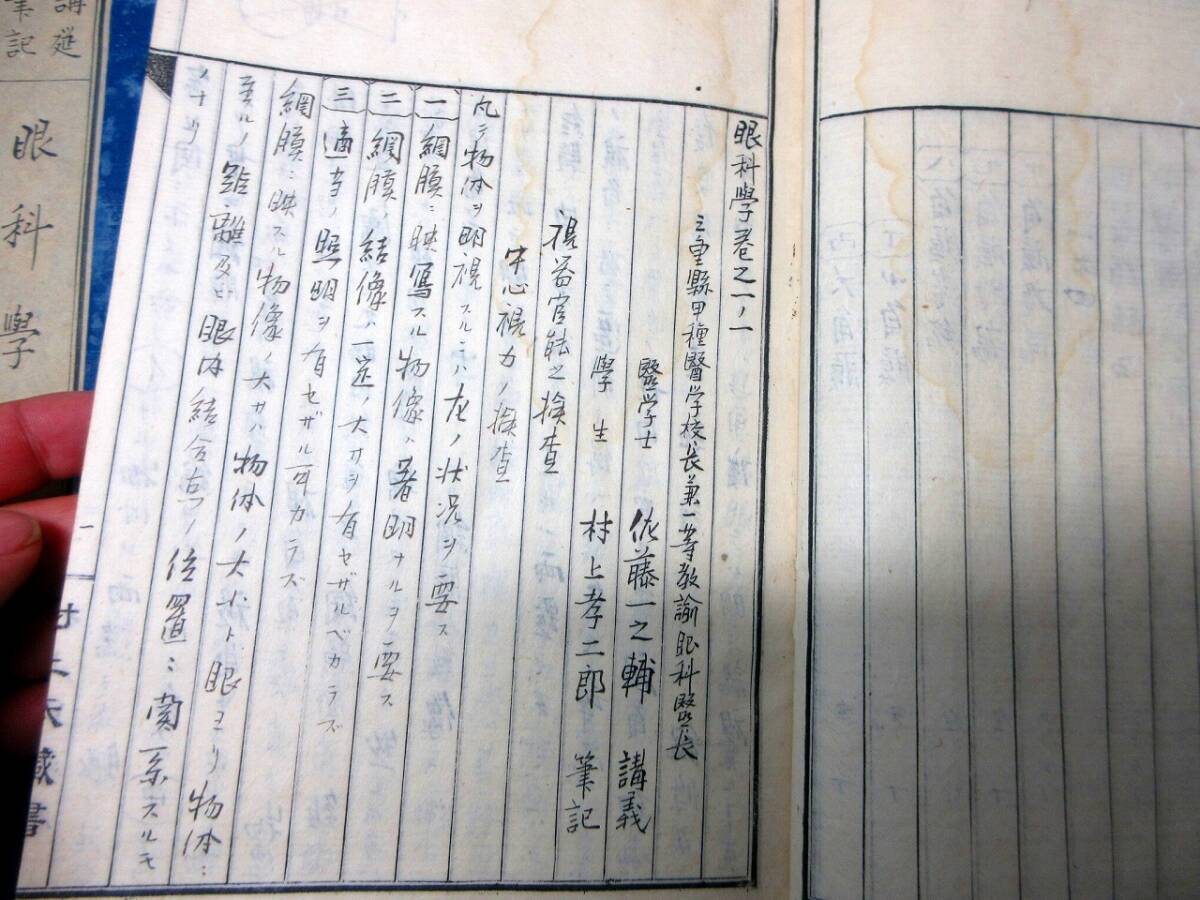 眼科學巻之一ノ一
三重縣甲種醫学校長兼一等教諭眼科醫長
醫学士 佐藤一之輔 講義
學生 村上孝二郎 筆記
視器官能之検査
中心視力ノ検査
凡テ物体ヲ明視スルニハ左ノ状況ヲ要ス
(一)網膜ニ映寫スル物像ハ著明ナルヲ要ス
(二)網膜ノ結像ハ一定ノ大サヲ有セザルベカラズ
(三)適当ノ照明ヲ有セザル可カラズ
網膜ニ映スル物像ノ大サハ物体ノ大サト眼ヨリ物体ニ
至ルノ距離及ビ眼内結合点ノ位置ニ関系スルモ
ノナリ
一
藏書
講莚
筆記
眼科學